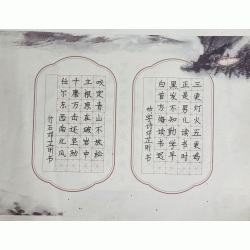 三更灯火五更鸡
正是男儿读书时
黑发不知勤学早
白首方悔读书迟
咬定青山不放松
立根原在破岩中
千磨万击还坚劲
任尔东西南北风
竹石